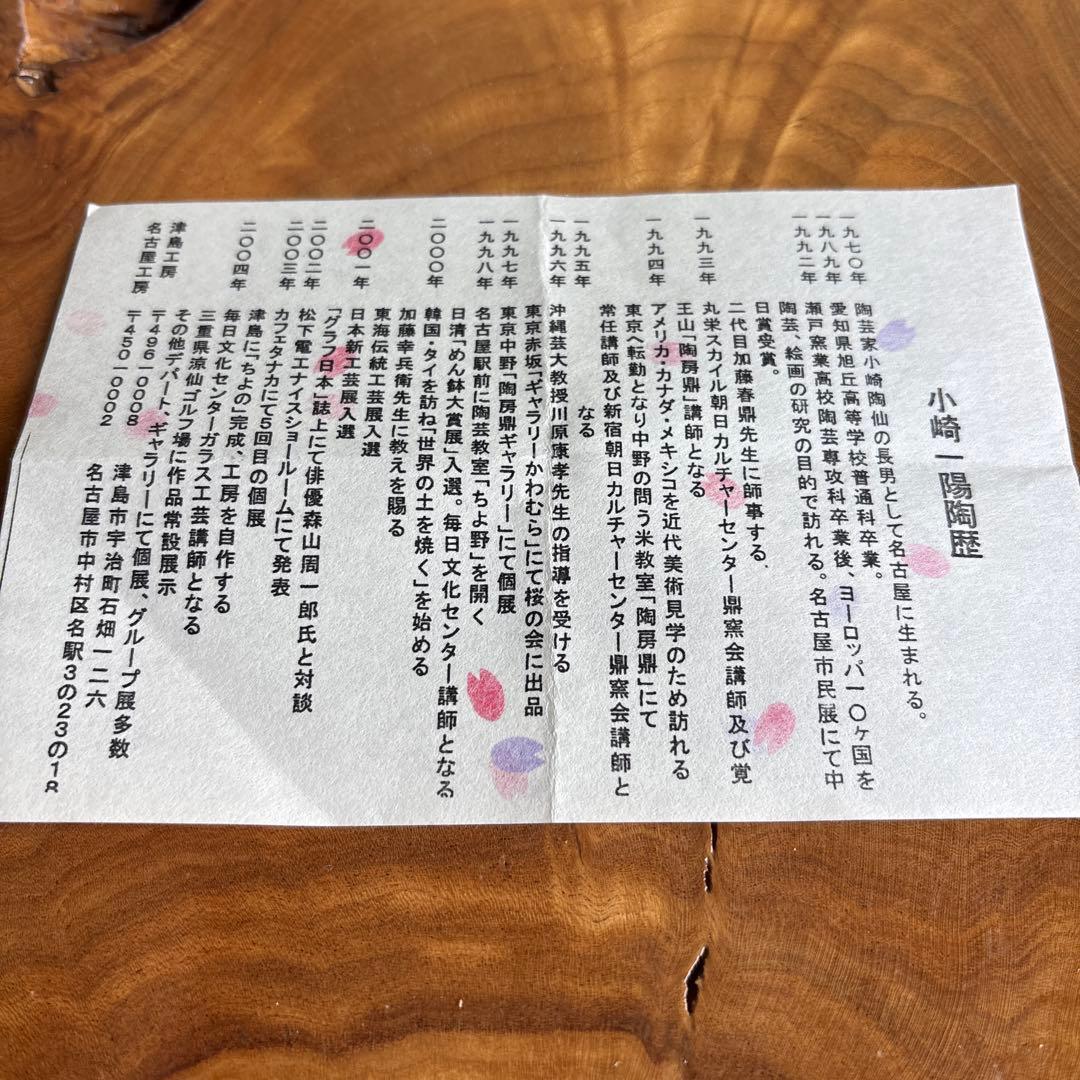 小崎一陽陶歴
一九七〇年 陶芸家小崎陶仙の長男として名古屋に生まれる。
一九八九年 愛知県旭丘高等学校普通科卒業。
一九九二年 瀬戸窯業高校陶芸専攻科卒業後、ヨーロッパ一〇ヶ国を
陶芸、絵画の研究の目的で訪れる。名古屋市民展にて中
日賞受賞。
二代目加藤春鼎先生に師事する.
一九九三年 丸栄スカイル朝日カルチャーセンター鼎窯会講師及び覚
王山「陶房鼎」講師となる
一九九四年 アメリカ・カナダ・メキシコを近代美術見学のため訪れる
東京へ転勤となり中野の問う米教室「陶房鼎」にて
常任講師及び新宿朝日カルチャーセンター鼎窯会講師と
なる
一九九五年
一九九六年 沖縄芸大教授川原康孝先生の指導を受ける
東京赤坂「ギャラリーかわむら」にて桜の会に出品
一九九七年 東京中野「陶房鼎ギャラリー」にて個展
一九九八年 名古屋駅前に陶芸教室「ちよ野」を開く
日清「めん鉢大賞展」入選。毎日文化センター講師となる
二〇〇〇年 韓国・タイを訪ね「世界の土を焼く」を始める
加藤幸兵衛先生に教えを賜る
東海伝統工芸展入選
二〇〇一年 日本新工芸展入選
「グラフ日本」誌上にて俳優森山周一郎氏と対談
二〇〇二年 松下電工ナイスショールームにて発表
二〇〇三年 カフェタナカにて5回目の個展
津島に「ちよの」完成、工房を自作する
二〇〇四年 毎日文化センターガラス工芸講師となる
三重県涼仙ゴルフ場に作品常設展示
その他デパート、ギャラリーにて個展、グループ展多数
津島工房 〒496-0008 津島市宇治町石畑一二六
名古屋工房 〒450-0002 名古屋市中村区名駅3の23の18